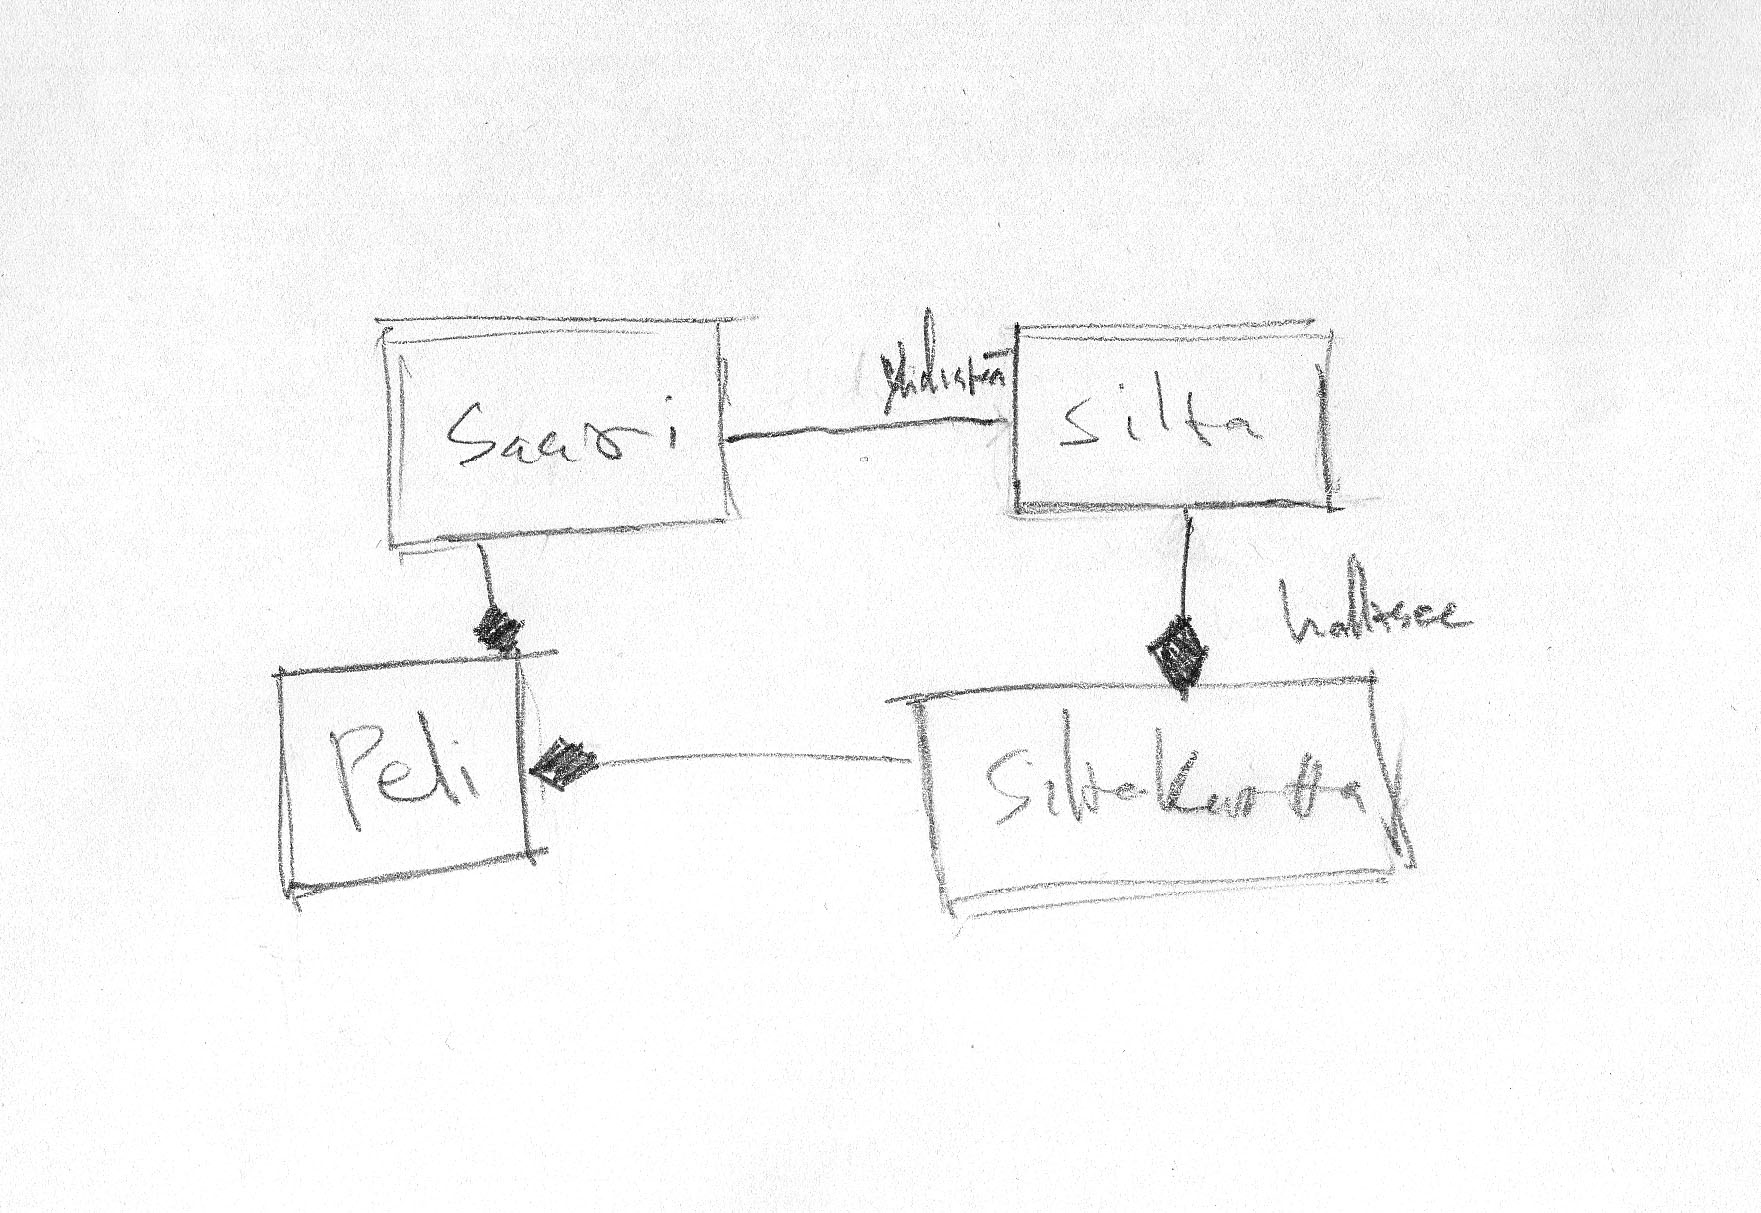 Saari
yhdistää
Silta
hallitsee
Peli
Siltakunta